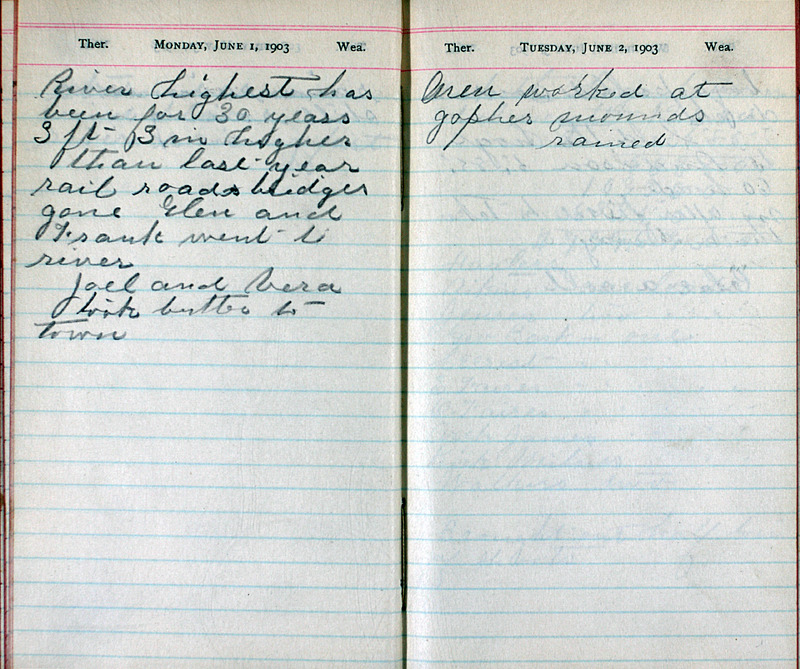 Ther. MONDAY, JUNE 1, 1903 Wea.
River highest has
been for 30 years
3 ft 3 in higher
than last year
rail roads bridges
gone Glen and
Frank went to
river
Joel and Vera
took butter to
town
Ther. TUESDAY, JUNE 2, 1903 Wea.
men worked at
gopher mounds
rained